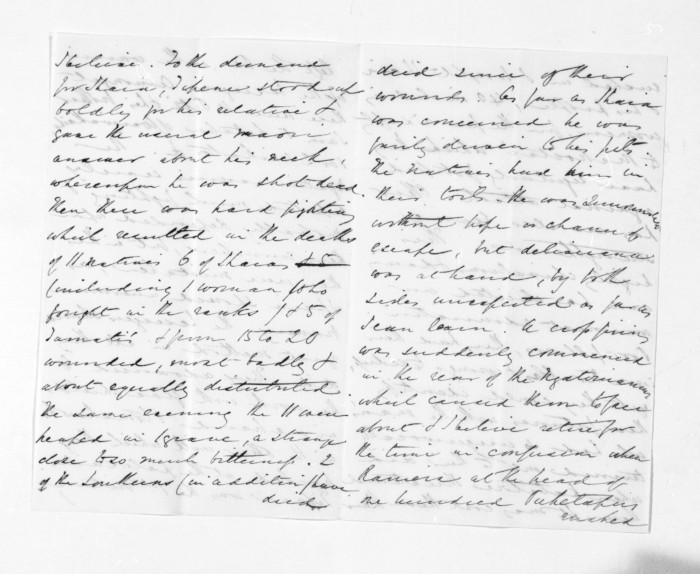 I believe. To the demand
for Ihaia, Tipene stood up
boldly for his relative &
gave the usual maori
answer about his neck,
whereupon he was shot dead.
Then there was hard fighting
which resulted in the deaths
of 11 natives 6 of Ihaias & 5
(including 1 woman who
fought in the ranks) & 5 of
Tamati's & from 15 to 20
wounded, most badly &
about equally distributed.
The same evening the 11 were
heaped in 1 grave, a strange
close to so much bitterness. 2
of the Southerns (in addition) have
died
died since of their
wounds. As far as Ihaia
was concerned he was
fairly driven to his pits.
The natives had him in
their toils. He was surrounded
without hope or chance of
escape, but deliverance
was at hand, by both
sides unexpected as far as
I can learn. A cross firing
was suddenly commenced
in the rear of the Ngatiruanuis
which caused them to face
about & I believe retire for
the time in confusion when
at the head of
one hundred
rushed